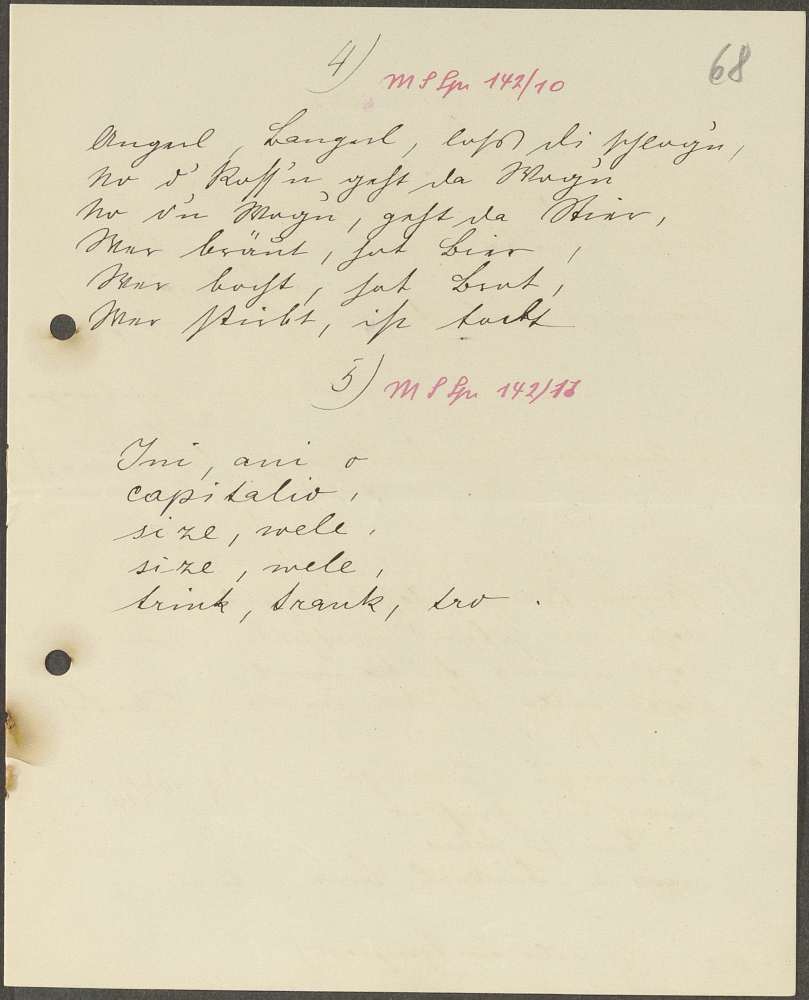 68
4) M S Spr 142/10
Angerl, Bangerl, loss di schlog'n,
No d' Ross'n geht da Wog'n
No d'n Wog'n, geht da Stier,
Wer bräut, hat Bier,
Wer bocht, hat Brot,
Wer stirbt, is todt
5) M S Spr 142/13
Ini, ani o
capitalio,
size, wele,
size, wele,
trink, trank, tro.